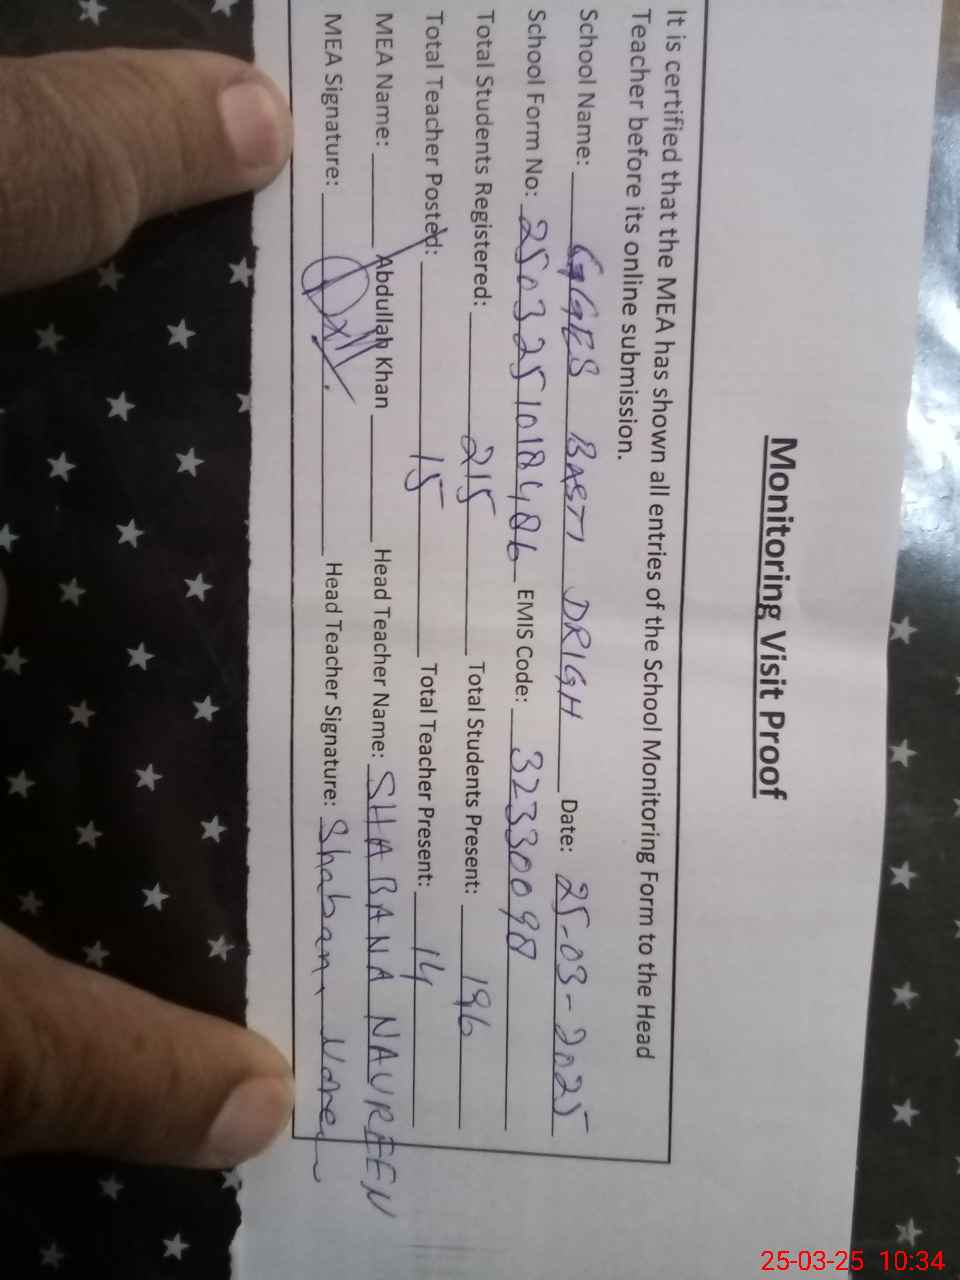 Monitoring Visit Proof
It is certified that the MEA has shown all entries of the School Monitoring Form to the Head
Teacher before its online submission.
School Name: GGES BASTI DRIGH Date: 25-03-2025
School Form No: 2503251018486 EMIS Code: 32330098
Total Students Registered: 215 Total Students Present: 196
Total Teacher Posted: 15 Total Teacher Present: 14
MEA Name: Abdullah Khan Head Teacher Name: SHABANA NAUREEN
MEA Signature: Head Teacher Signature: Shabana
25-03-25 10:34